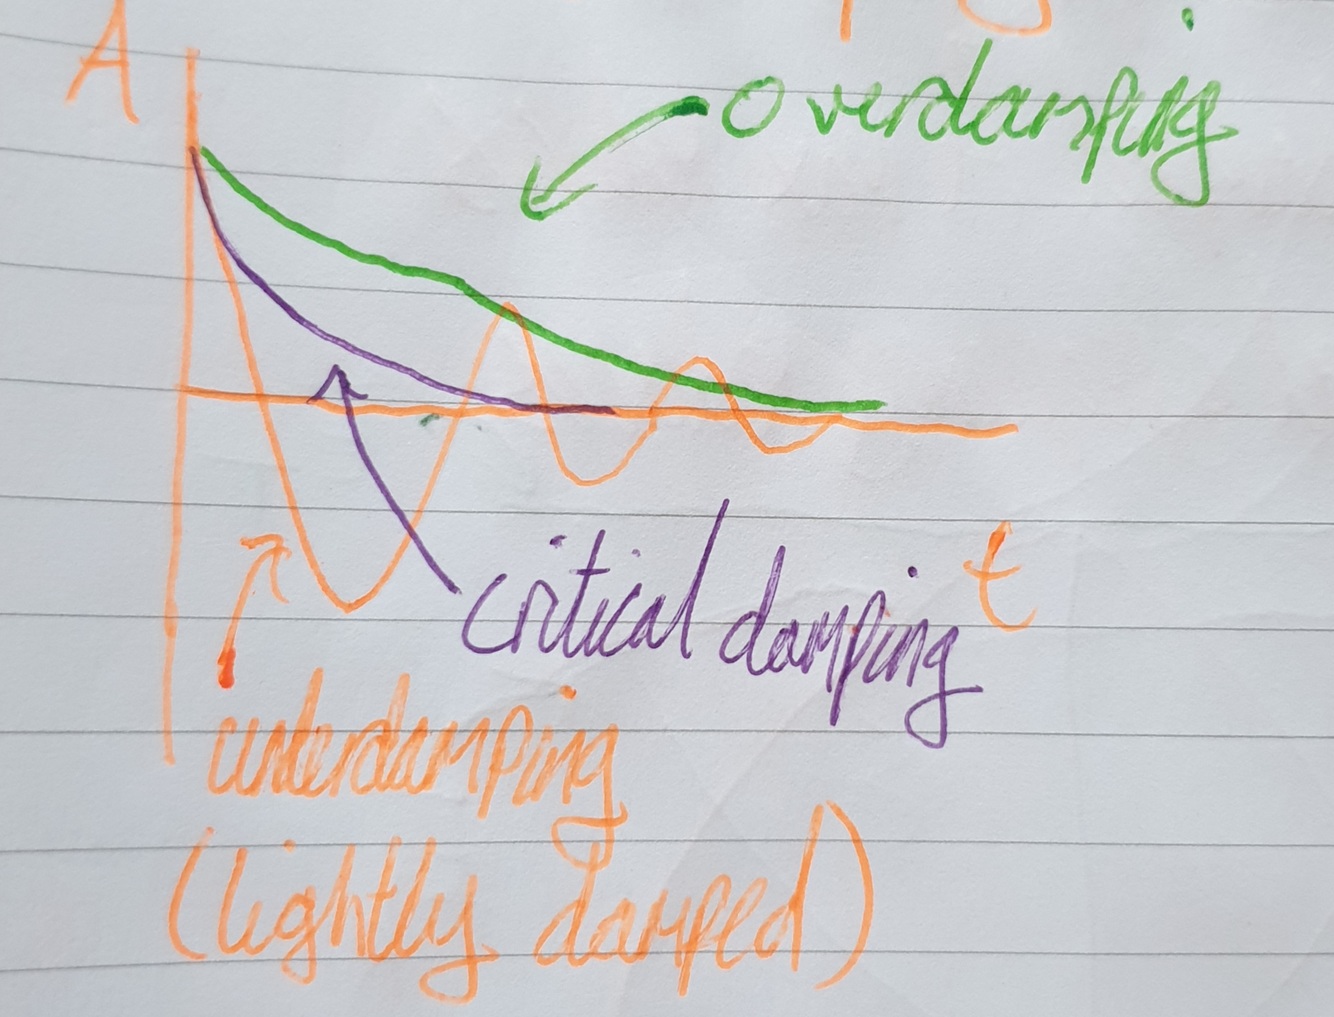 A
overdamping
critical damping
t
underdamping
(lightly damped)